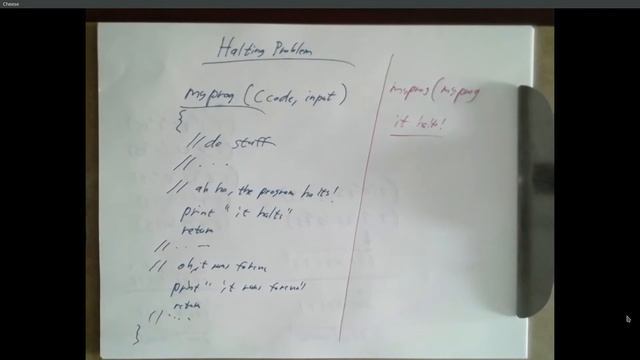 Cheese
Halting Problem
myprog (C code, input)
{
// do stuff
// . . .
// ah ha, the program halts!
print "it halts"
return
// . . —
// oh, it runs forever
print "it runs forever"
return
// . . . .
}
myprog(myprog
it halts!